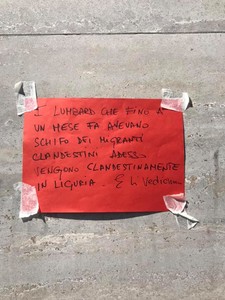 I LUMBARD CHE FINO A
UN MESE FA AVEVANO
SCHIFO DEI MIGRANTI
CLANDESTINI ADESSO
VENGONO CLANDESTINAMENTE
IN LIGURIA. E li vediamo